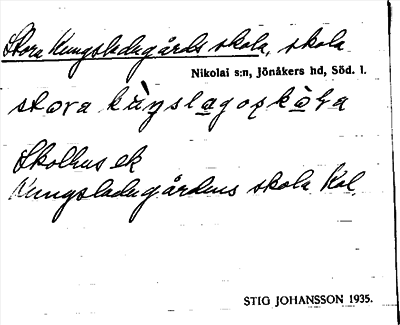 Stora Kungsladugårds skola, skola
Nikolai s:n, Jönåkers hd, Söd. l.
stora
Skolhus ek
Kungsladugårdens skola Kal.
STIG JOHANSSON 1935.